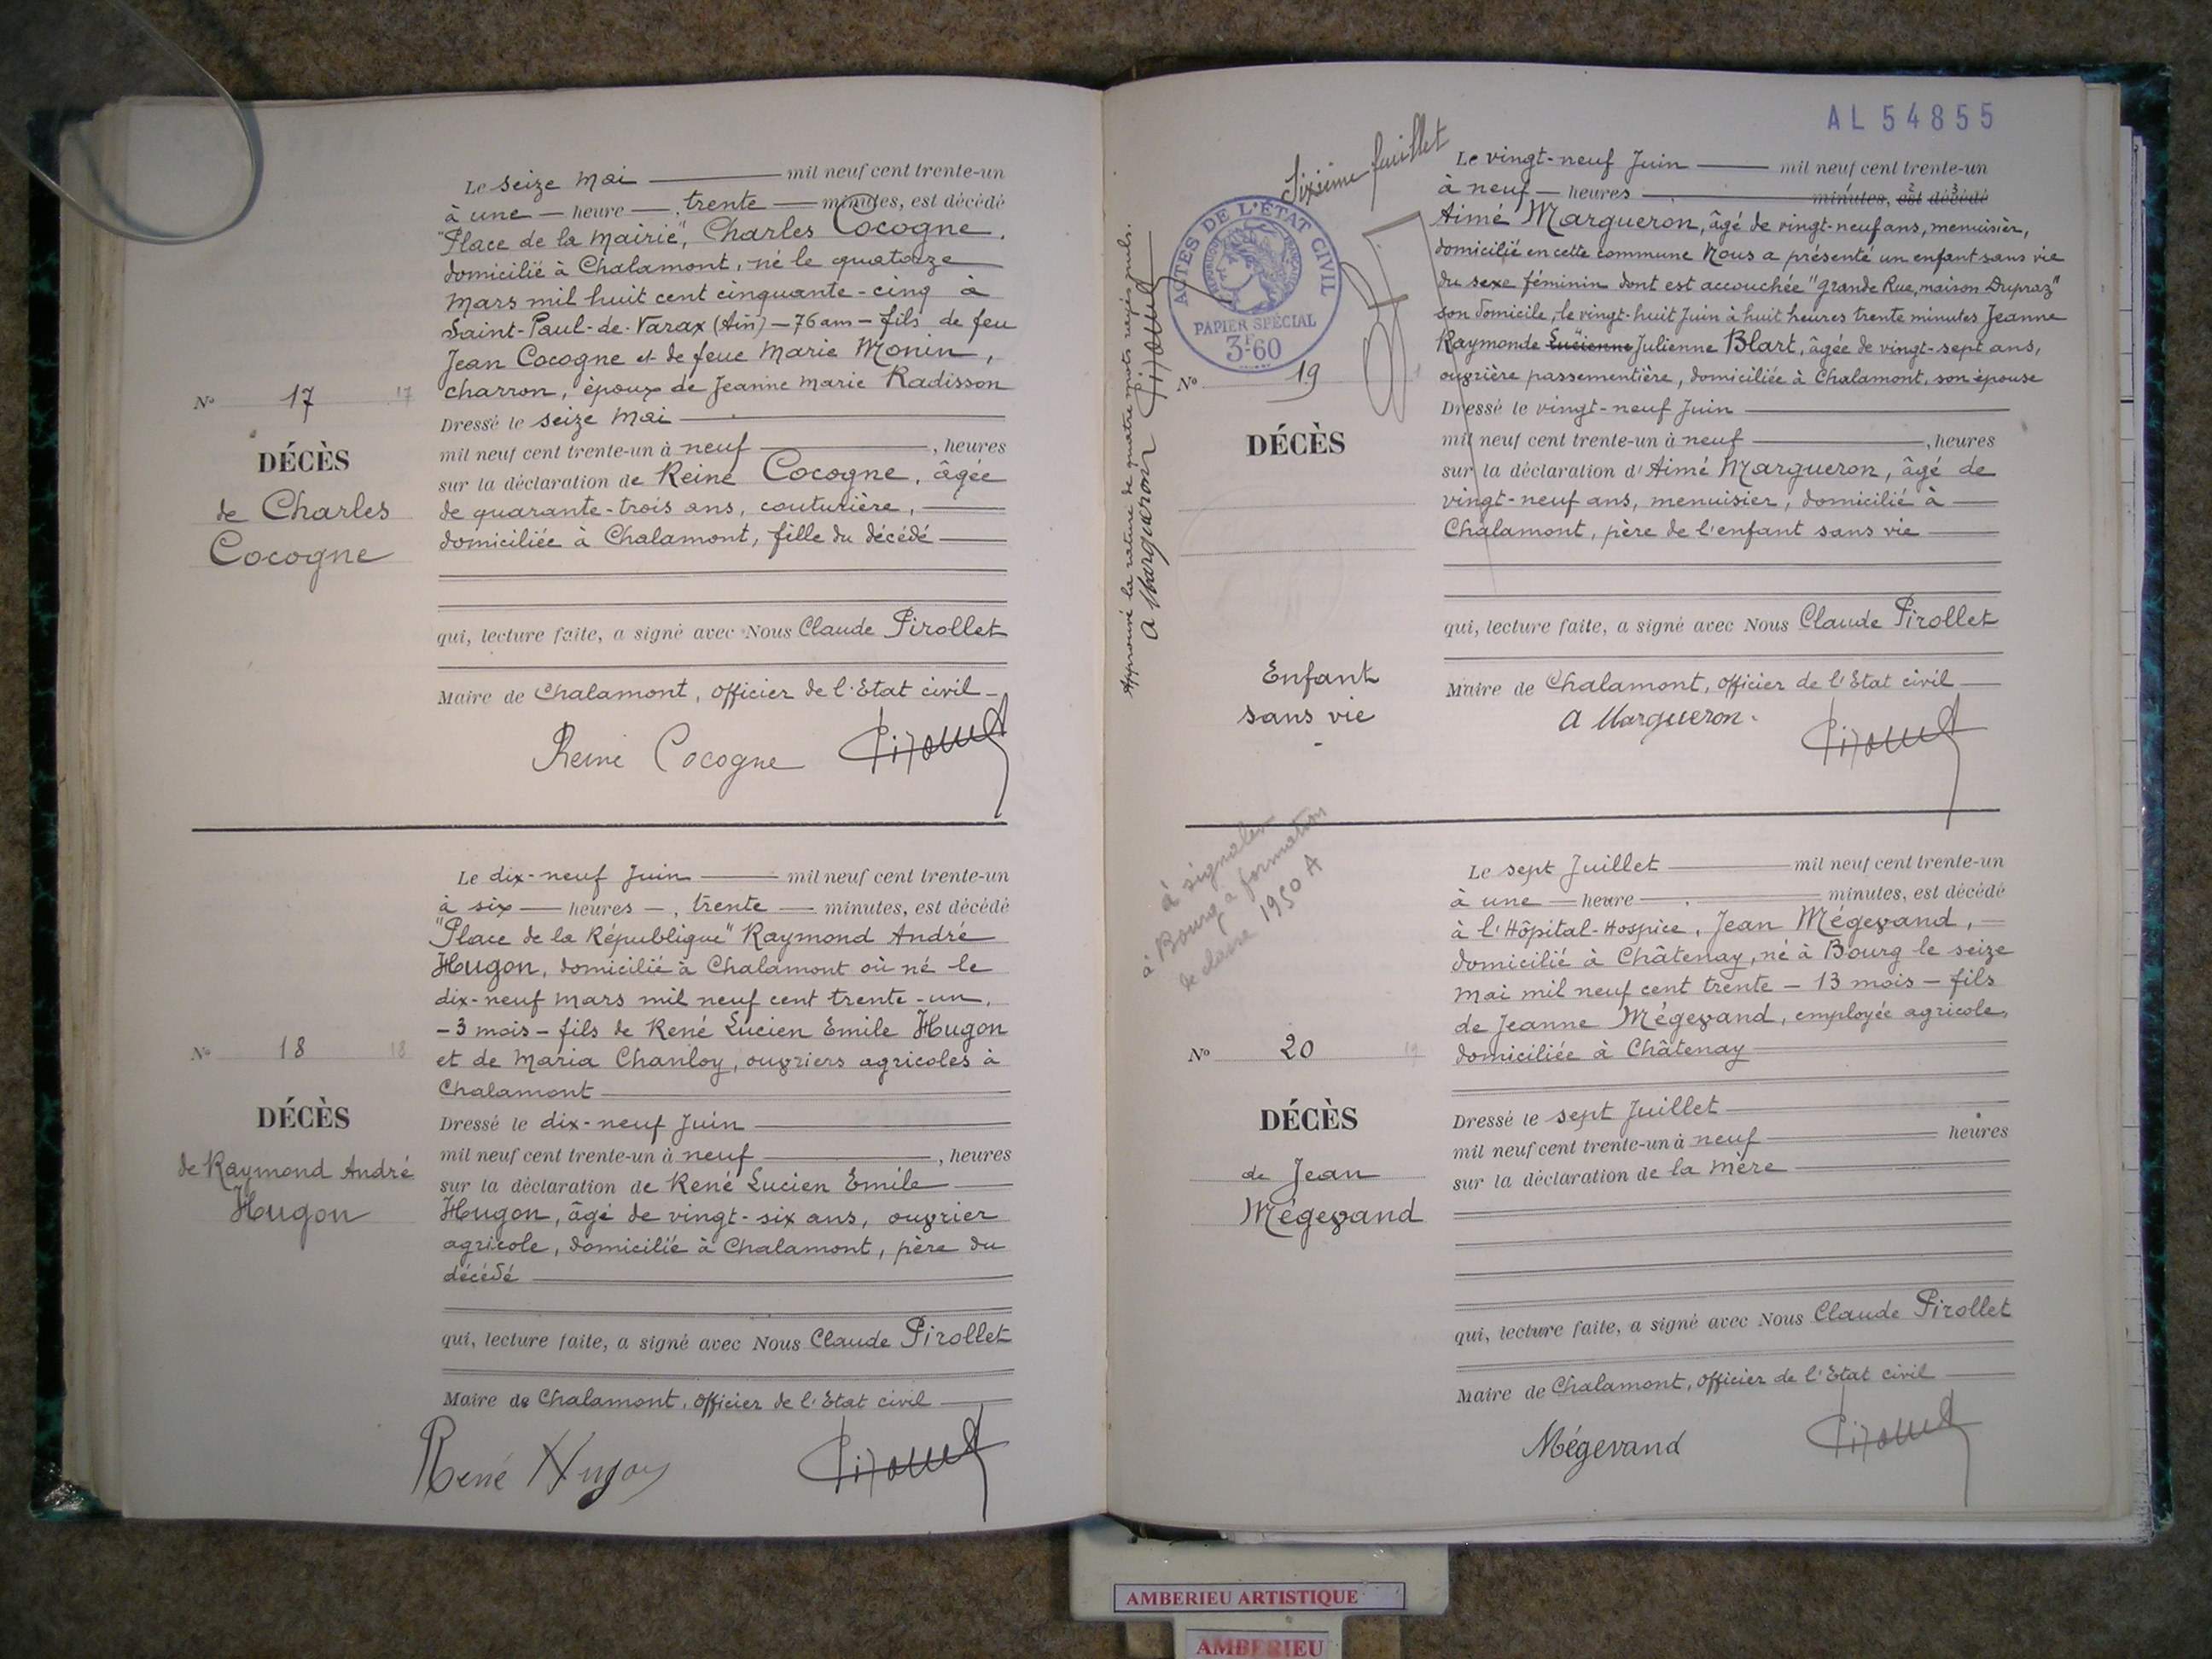 Le seize Mai mil neuf cent trente-un
à une heure, trente minutes, est décédé
"Place de la Mairie", Charles Cocogne,
domicilié à Chalamont, né le quatorze
Mars mil huit cent cinquante-cinq à
Saint-Paul-de-Varax (Ain) — 76 ans — fils de feu
Jean Cocogne et de feue Marie Monin,
charron, époux de Jeanne Marie Radisson
Nº 17
17
Dressé le seize Mai
DÉCÈS
de Charles
Cocogne
mil neuf cent trente-un à neuf, heures
sur la déclaration de Reine Cocogne, âgée
de quarante-trois ans, couturière,
domiciliée à Chalamont, fille du décédé
qui, lecture faite, a signé avec Nous Claude Pirollet
Maire de Chalamont, officier de l'Etat civil
Reine Cocogne Pirollet
Le dix-neuf Juin mil neuf cent trente-un
à six heures, trente minutes, est décédé
"Place de la République" Raymond André
Hugon, domicilié à Chalamont où né le
dix-neuf Mars mil neuf cent trente-un,
— 3 mois — fils de René Lucien Emile Hugon
et de Maria Chanloy, ouvriers agricoles à
Chalamont
Nº 18
18
DÉCÈS
de Raymond André
Hugon
Dressé le dix-neuf Juin
mil neuf cent trente-un à neuf, heures
sur la déclaration de René Lucien Emile
Hugon, âgé de vingt-six ans, ouvrier
agricole, domicilié à Chalamont, père du
décédé
qui, lecture faite, a signé avec Nous Claude Pirollet
Maire de Chalamont, officier de l'Etat civil
René Hugon Pirollet
AL 54855
Sixième feuillet
ACTES DE L'ÉTAT CIVIL
PAPIER SPÉCIAL
3F60
Approuvé la rature de quatre mots rayés nuls.
A Margueron Pirollet
Le vingt-neuf Juin mil neuf cent trente-un
à neuf heures minutes, est décédé
Aimé Margueron, âgé de vingt-neuf ans, menuisier,
domicilié en cette commune Nous a présenté un enfant sans vie
du sexe féminin dont est accouchée "Grande Rue, maison Dupraz"
son domicile, le vingt-huit Juin à huit heures trente minutes Jeanne
Raymonde Lucienne Julienne Blart, âgée de vingt-sept ans,
ouvrière passementière, domiciliée à Chalamont, son épouse
Nº 19
DÉCÈS
Enfant
sans vie
Dressé le vingt-neuf Juin
mil neuf cent trente-un à neuf, heures
sur la déclaration d'Aimé Margueron, âgé de
vingt-neuf ans, menuisier, domicilié à
Chalamont, père de l'enfant sans vie
qui, lecture faite, a signé avec Nous Claude Pirollet
Maire de Chalamont, officier de l'Etat civil
A Margueron. Pirollet
à signaler
à Bourg à formation
de classe 1950 A
Le sept Juillet mil neuf cent trente-un
à une heure minutes, est décédé
à l'Hôpital-Hospice, Jean Mégevand,
domicilié à Châtenay, né à Bourg le seize
Mai mil neuf cent trente — 13 mois — fils
de Jeanne Mégevand, employée agricole,
domiciliée à Châtenay
Nº 20
19
DÉCÈS
de Jean
Mégevand
Dressé le sept Juillet
mil neuf cent trente-un à neuf heures
sur la déclaration de la Mère
qui, lecture faite, a signé avec Nous Claude Pirollet
Maire de Chalamont, officier de l'Etat civil
Mégevand Pirollet
AMBERIEU ARTISTIQUE
AMBERIEU